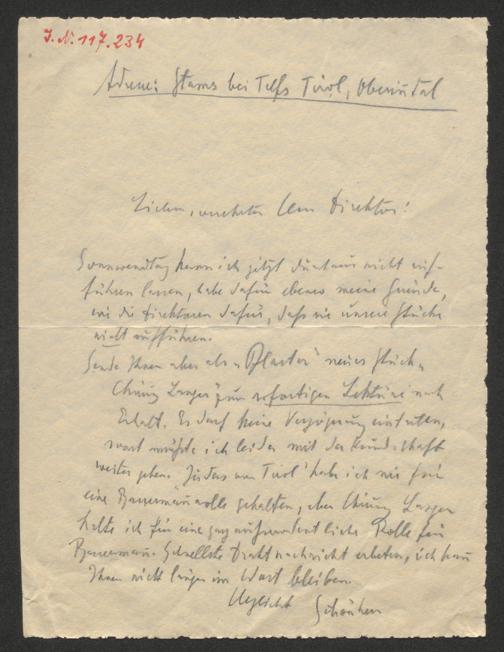 J.N. 117.234
Adresse: Stams bei Telfs Tirol, Oberinntal
Lieber, verehrter Herr Direktor!
Sonnwendtag kann ich jetzt durchaus nicht auf-
führen lassen, habe dafür ebenso meine Gründe,
wie die Direktoren dafür, dass sie unsere Stücke
nicht aufführen.
Sende Ihnen aber als "Pflaster" neues Stück
zur sofortigen Lektüre nach
Erhalt. Es darf keine Verzögerung eintreten,
sonst müsste ich leider mit der Kundschaft
weiter gehen. "Judas von Tirol" habe ich nie für
eine Bassermannrolle gehalten, aber
halte ich für eine ganz außerordentliche Rolle für
Bassermann. Schnellste Drahtnachricht erbeten, ich kann
Ihnen nicht länger im Wort bleiben.
Herzlichst Schönherr